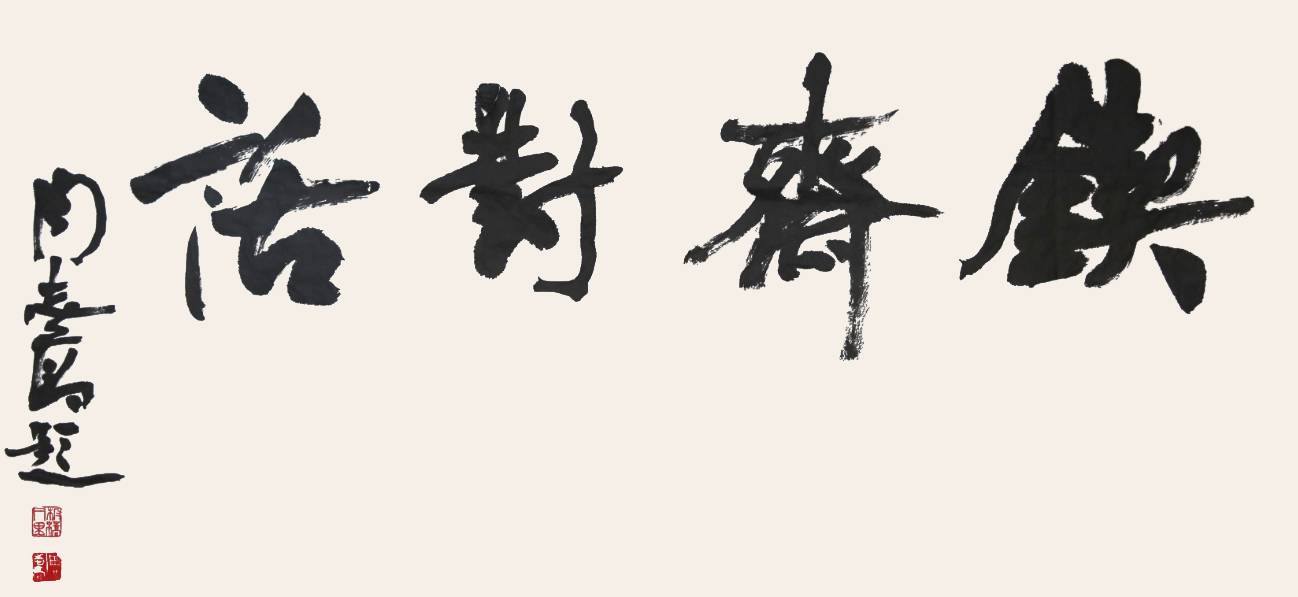 鍥齋對話
周志高題